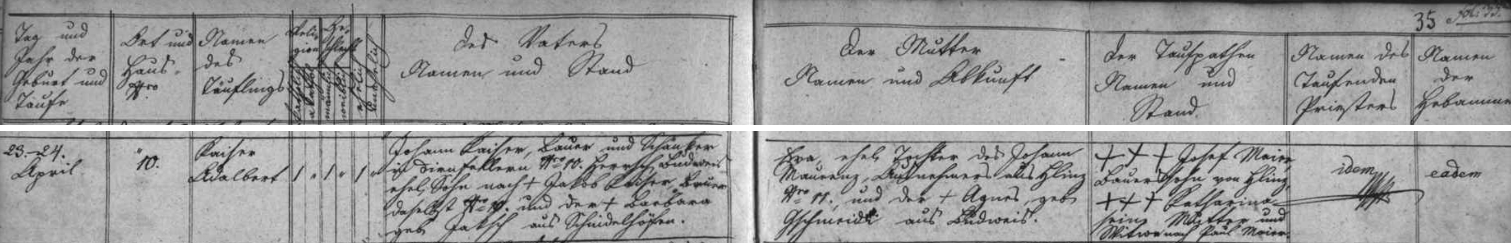 35
Tag und
Jahr der
Geburt und
Taufe
Ort und
Haus-
Nro
Namen
des
Täuflings
Reli
gion
Ge
schlecht
Des Vaters
Namen und Stand
Der Mutter
Namen und Abkunft
Der Taufpathen
Namen und
Stand
Namen des
Taufenden
Priesters
Namen
der
Hebamme
23.-24.
April
10.
Kaiser
Adalbert
1 1 1
Johann Kaiser, Bauer und Schänker
in Dirnfellern Nro 10. Herrsch. Budweis
ehel. Sohn nach † Jakob Kaiser, Bauer
daselbst Nro 10. und der † Barbara
geb. Jaksch aus Schindelhöfen.
Eva, ehel. Tochter des Johann
Maurenz, Ausnehmers aus Hlinz
Nro 11. und der † Agnes, geb.
Gschmeidl aus Budweis.
+ + + Josef Maier
Bauerssohn von Hlinz,
+ + + Katharina
seine Mutter und
Witwe nach Paul Maier.
idem
eadem